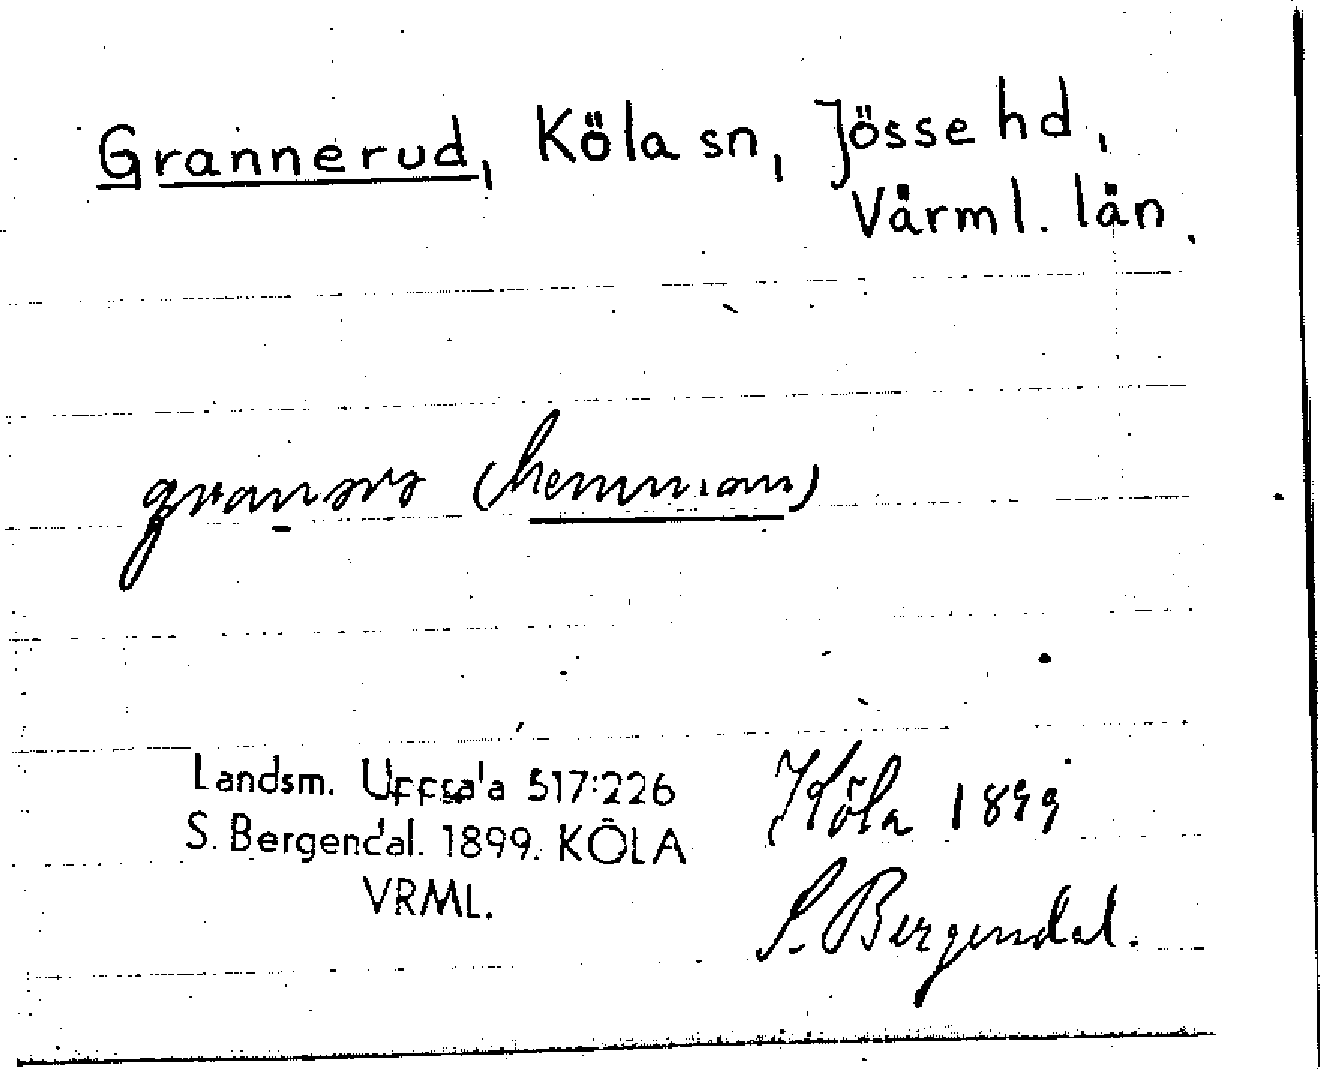 Grannerud, Köla sn, Jösse hd,
Värml. län.
(hemman)
Landsm. Uppsala 517:226
S. Bergendal. 1899. KÖLA
VRML.
Köla 1899
S. Bergendal.